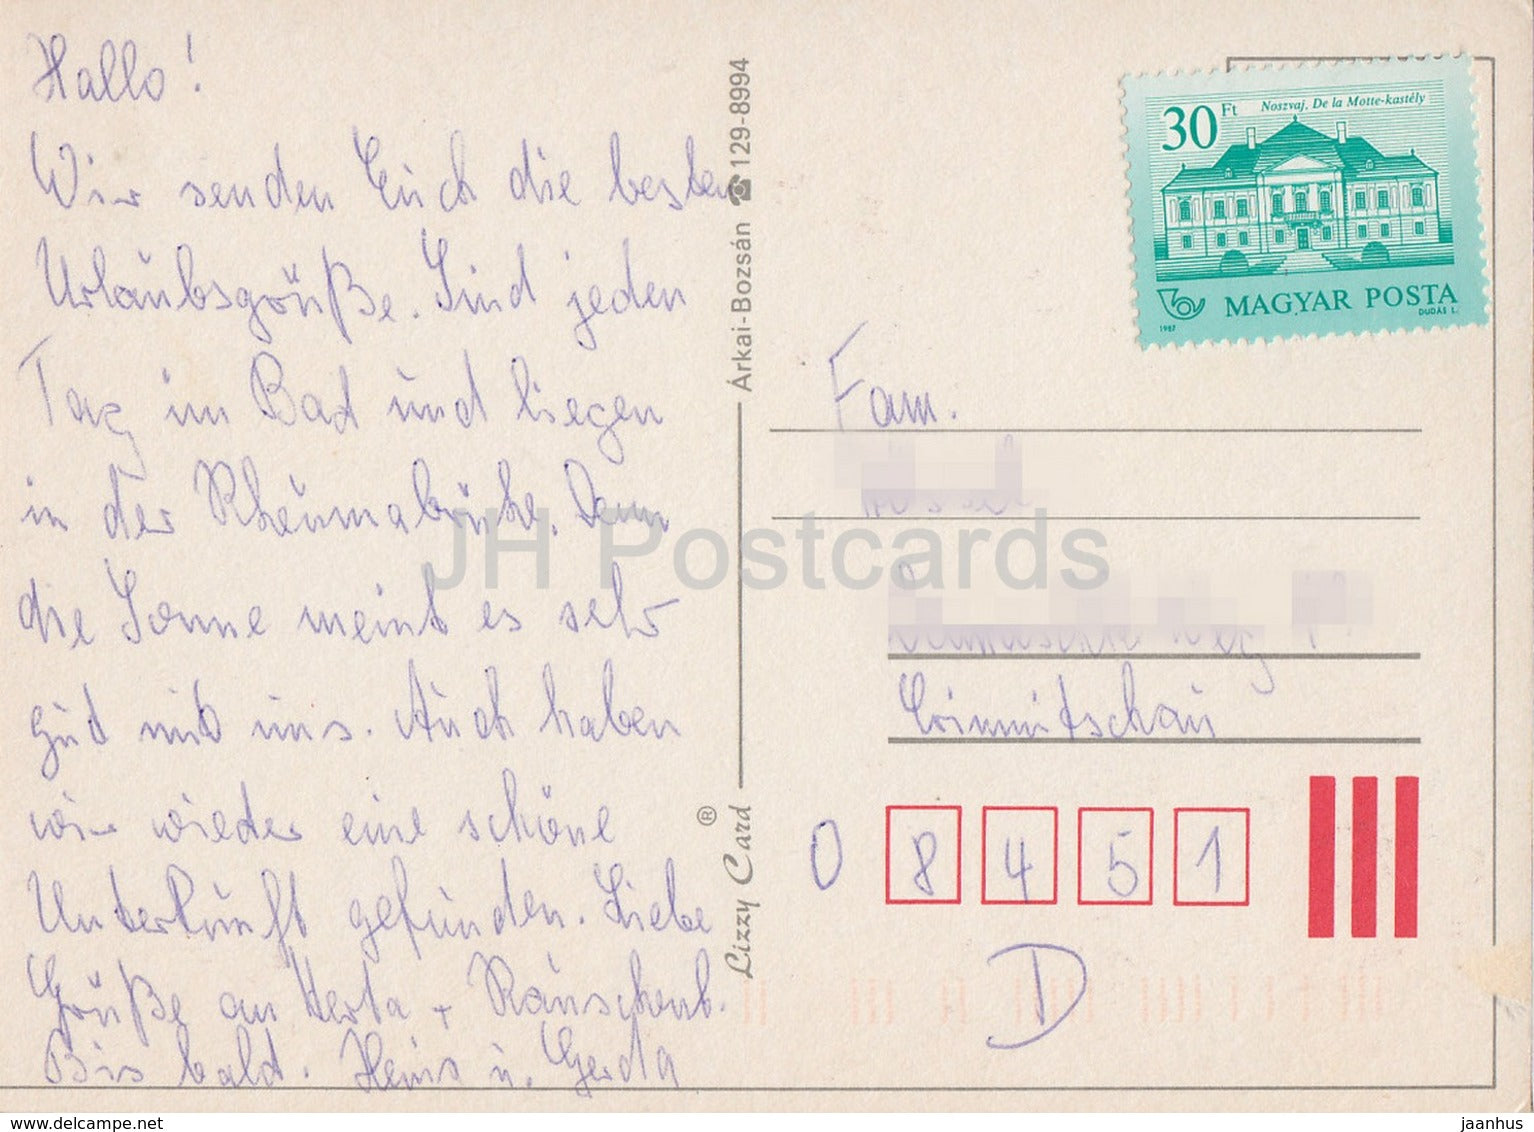 Hallo!
Wir senden Euch die besten
Urlaubsgrüße. Sind jeden
Tag im Bad und liegen
in der Rheumabrühe. Denn
die Sonne meint es sehr
gut mit uns. Auch haben
wir wieder eine schöne
Unterkunft gefunden. Liebe
Grüße an Herta + Räuschenb.
Bis bald. Heinz u. Gerda
Lizzy Card ®
Árkai-Bozsán ☎ 129-8994
30 Ft
Noszvaj, De la Motte-kastély
MAGYAR POSTA
1987
DUDÁS L.
Fam.
Weg
Crimmitschau
O 8451
D
JH Postcards
delcampe.net
jaanhus